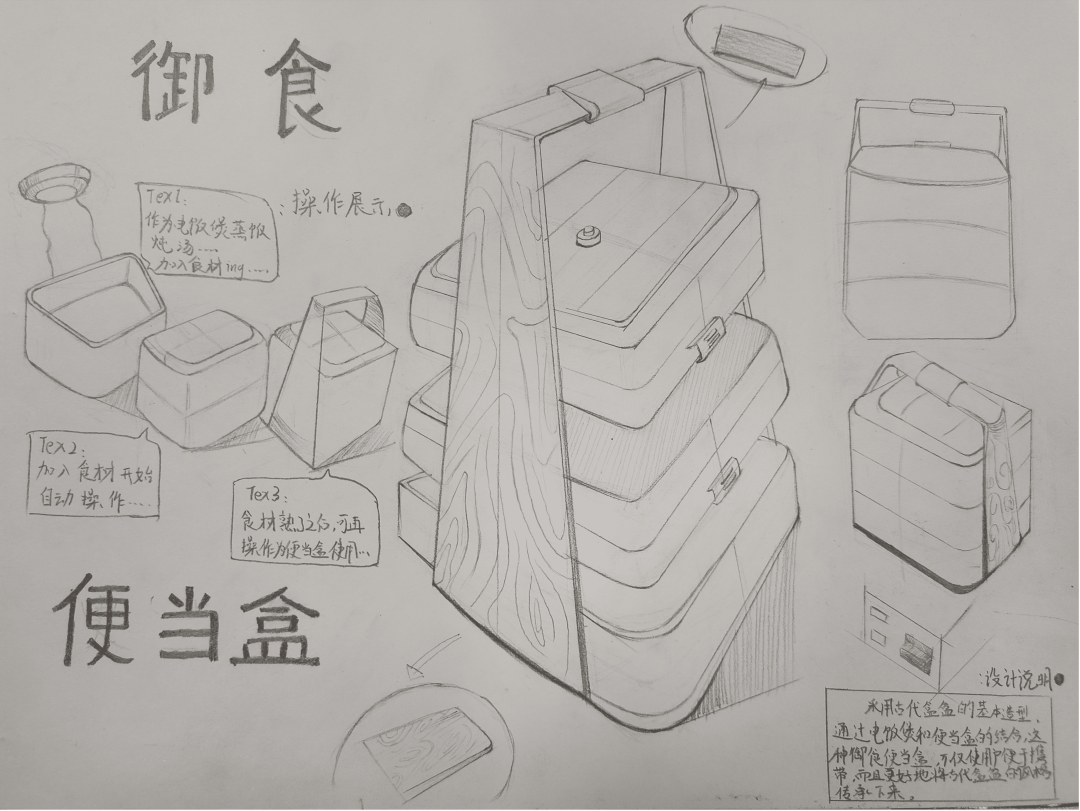 御食
Tex1:
作为电饭煲蒸饭
炖汤....
加入食材ing.....
:操作展示
Tex2:
加入食材开始
自动操作....
Tex3:
食材熟了之后,可再
操作为便当盒使用...
便当盒
:设计说明
采用古代食盒的基本造型、
通过电饭煲和便当盒的结合,这
种御食便当盒,不仅使用户便于携
带,而且更好地将古代食盒的风格
传承下来。